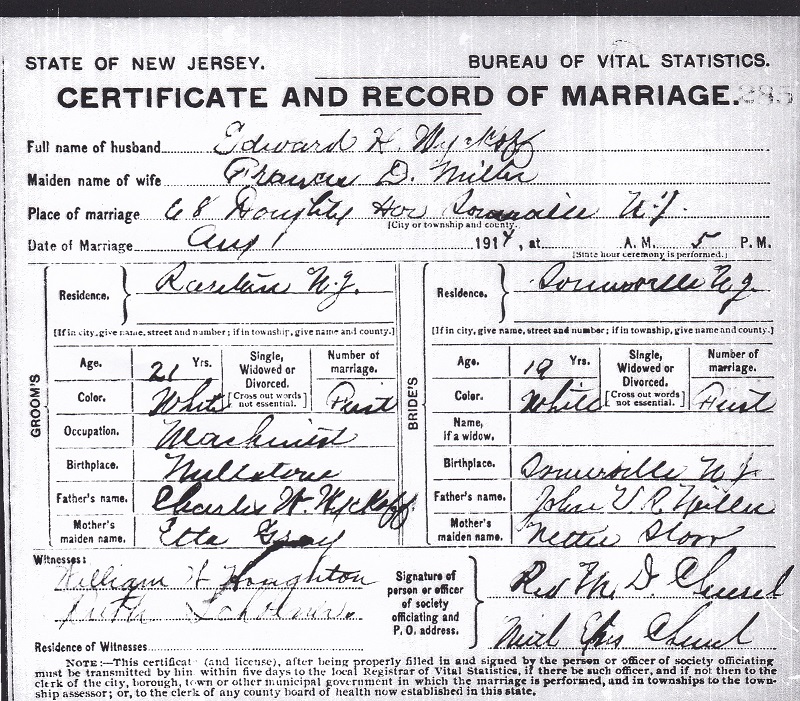 STATE OF NEW JERSEY. BUREAU OF VITAL STATISTICS.
CERTIFICATE AND RECORD OF MARRIAGE. 285
Full name of husband Edward H. Wyckoff
Maiden name of wife Frances D. Miller
Place of marriage 68 Doughty Somerville N.J.
[City or township and county.
Date of Marriage Aug 1 1914, at A. M. 5 P. M.
[State hour ceremony is performed.]
GROOM'S
Residence. Raritan N.J.
[If in city, give name, street and number; if in township, give name and county.]
Age. 21 Yrs. Single, Widowed or Divorced. Number of marriage.
Color. White [Cross out words not essential.] First
Occupation. Machinist
Birthplace. Millstone
Father's name. Charles W. Wyckoff
Mother's maiden name. Etta Gray
BRIDE'S
Residence. Somerville N.J.
[If in city, give name, street and number; if in township, give name and county.]
Age. 19 Yrs. Single, Widowed or Divorced. Number of marriage.
Color. White [Cross out words not essential.] First
Name, if a widow.
Birthplace. Somerville N.J.
Father's name. John V. R. Miller
Mother's maiden name. Nettie
Witnesses:
William H Houghton
Ruth
Residence of Witnesses
Signature of person or officer of society officiating and P. O. address.
Rev D. Church
Meth Epis Church
NOTE:—This certificat (and license), after being properly filled in and signed by the person or officer of society officiating
must be transmitted by him within five days to the local Registrar of Vital Statistics, if there be such officer, and if not then to the
clerk of the city, borough, town or other municipal government in which the marriage is performed, and in townships to the town-
ship assessor; or, to the clerk of any county board of health now established in this state.